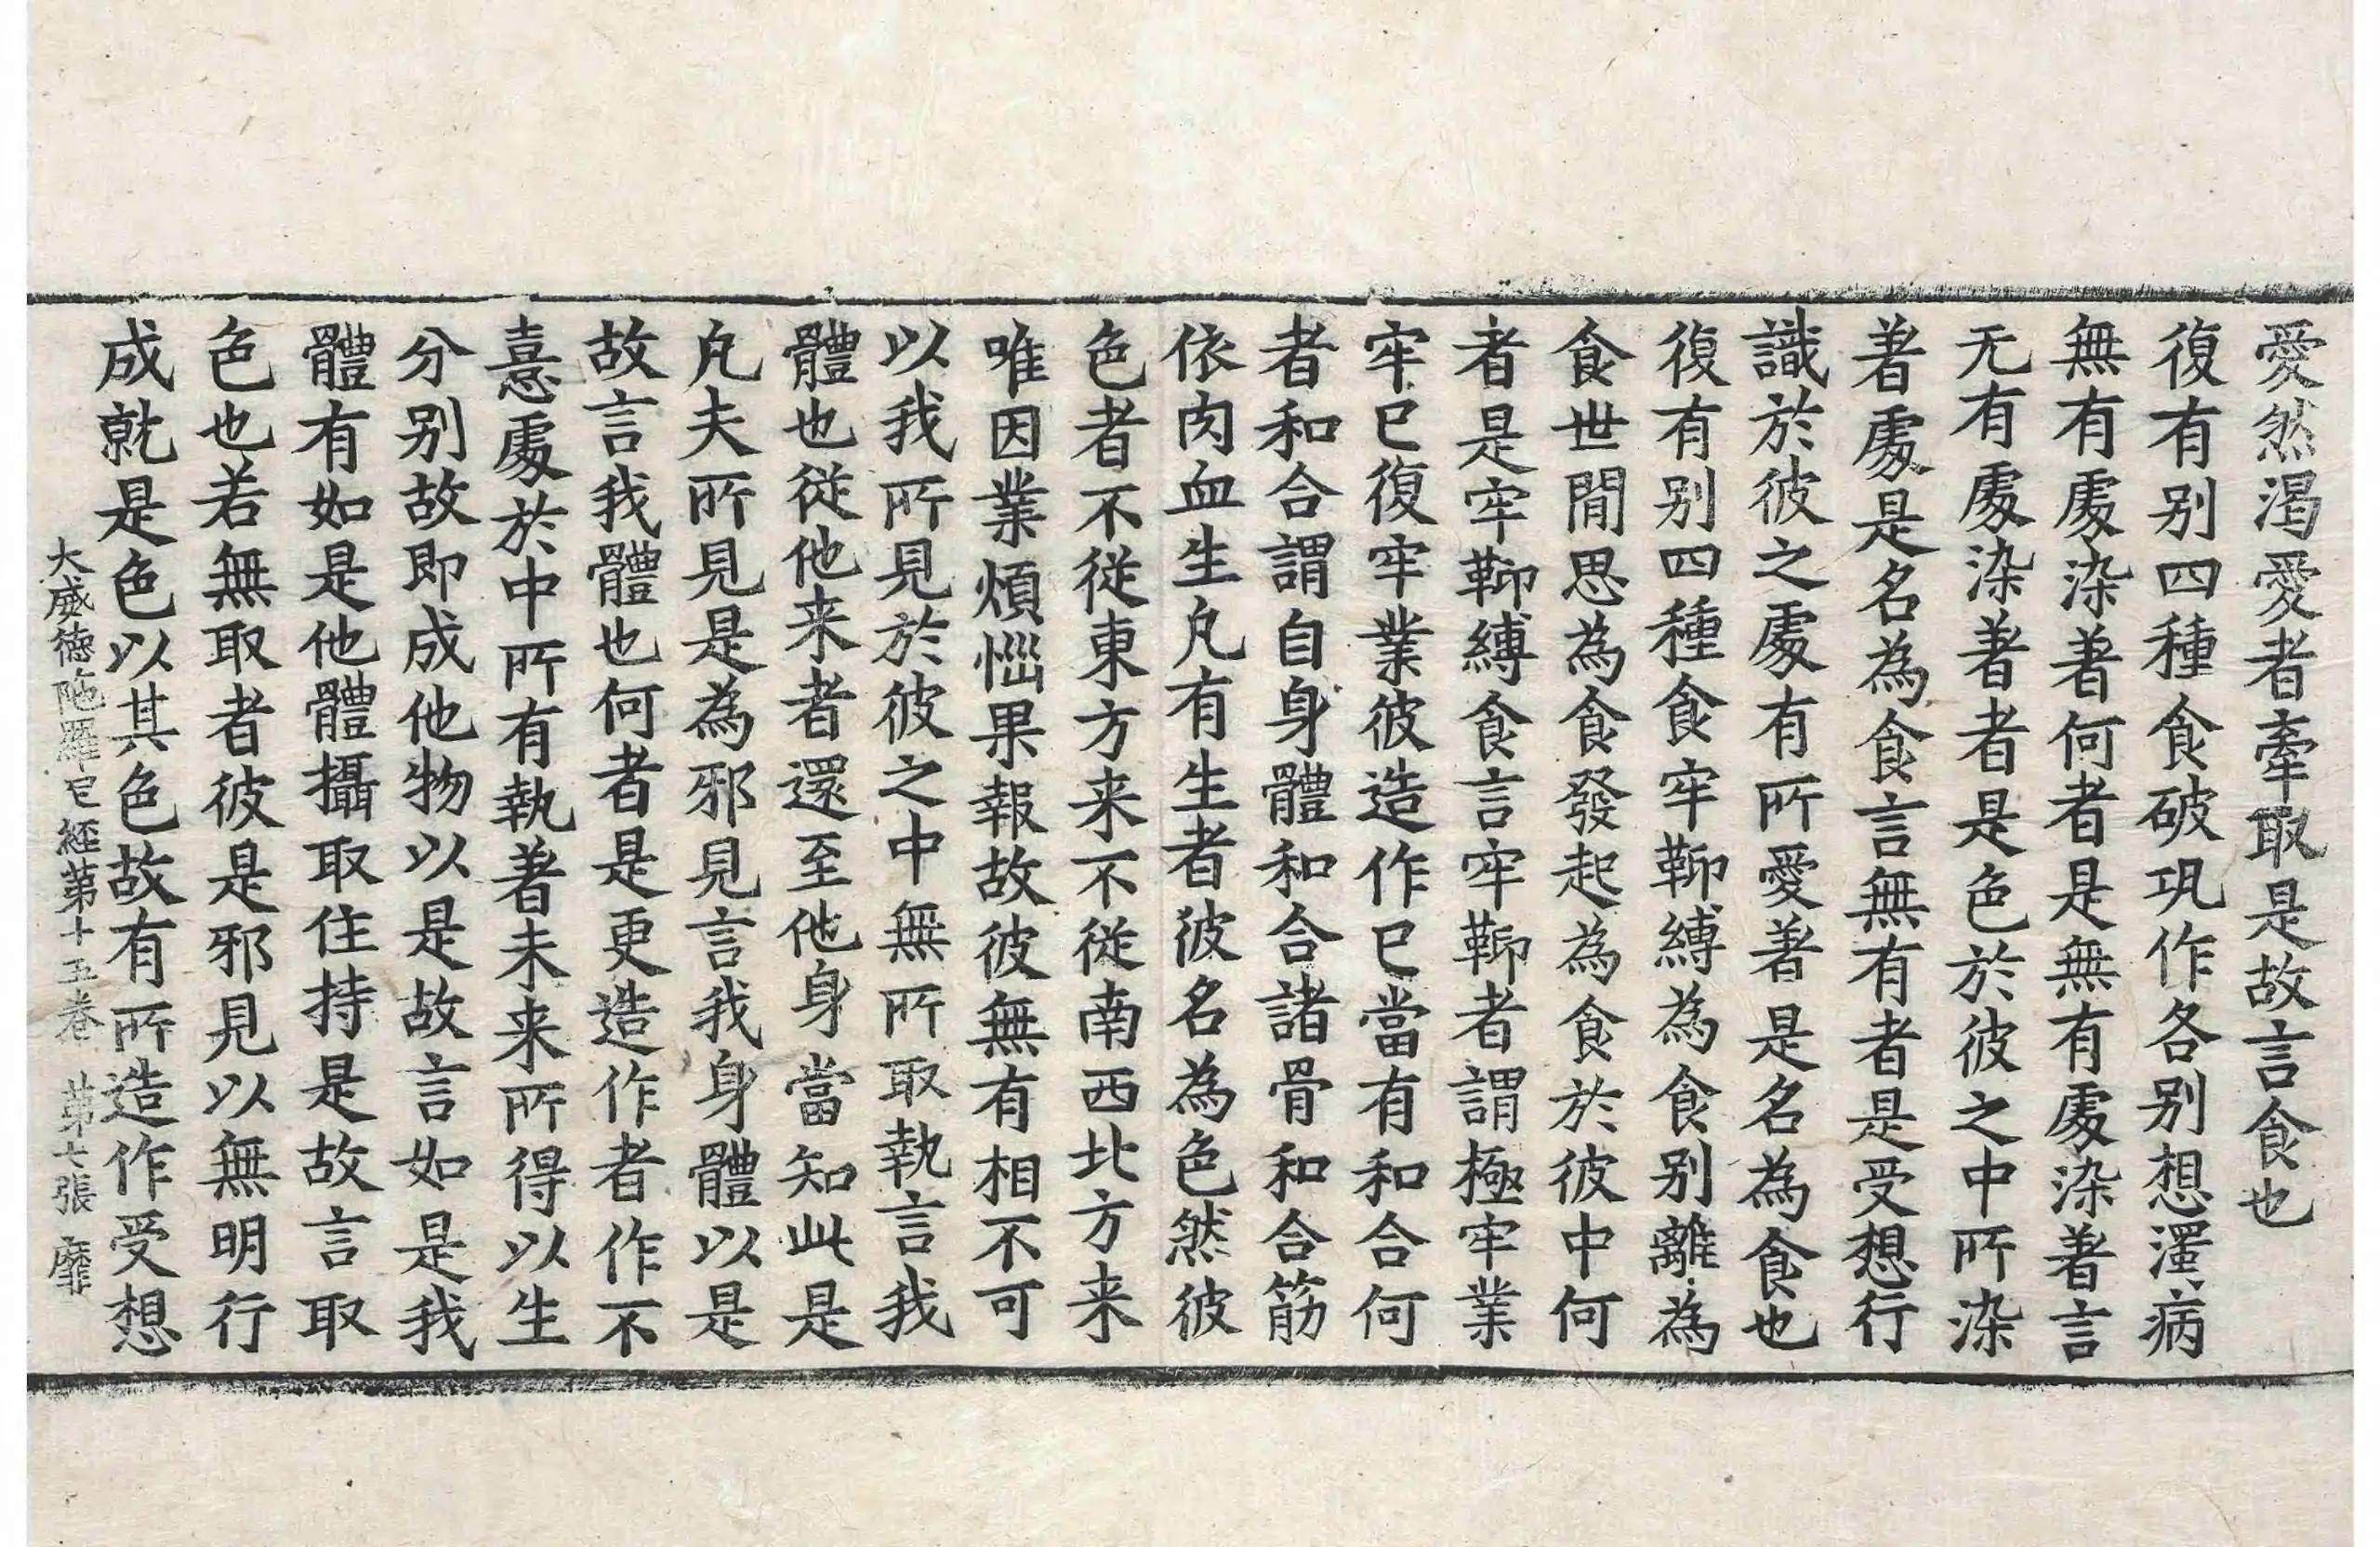 愛然渴愛者牽取是故言食也
復有别四種食破巩作各别想濁病
無有處染著何者是無有處染著言
无有處染著者是色於彼之中所染
著處是名為食言無有者是受想行
識於彼之處有所愛著是名為食也
復有别四種食牢鞕縛為食别離為
食世閒思為食發起為食於彼中何
者是牢鞕縛食言牢鞕者謂極牢業
牢巳復牢業彼造作巳當有和合何
者和合謂自身體和合諸骨和合筋
依肉血生凡有生者彼名為色然彼
色者不從東方来不從南西北方来
唯因業煩惱果報故彼無有相不可
以我所見於彼之中無所取執言我
體也從他来者還至他身當知此是
凡夫所見是為邪見言我身體以是
故言我體也何者是更造作者作不
憙處於中所有執著未来所得以生
分别故即成他物以是故言如是我
體有如是他體攝取住持是故言取
色也若無取者彼是邪見以無明行
成就是色以其色故有所造作受想
大威德陁羅尼經第十五卷 第七張 靡